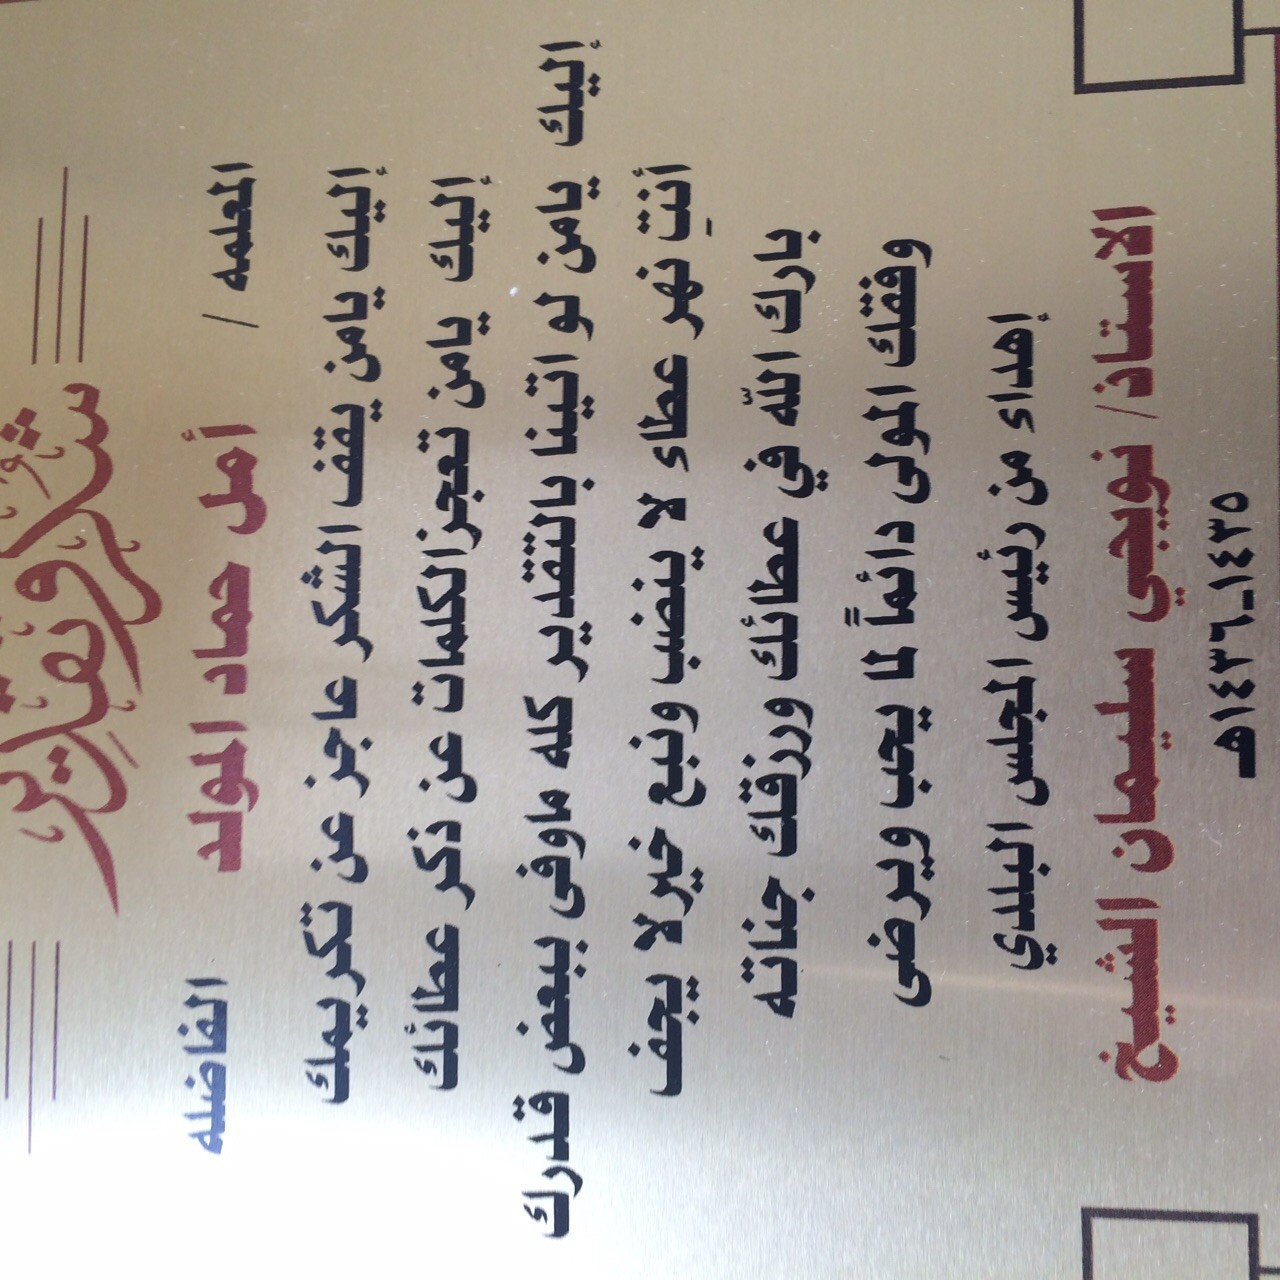 شكر وتقدير
المعلمه / أمل حماد المولد الفاضله
إليك يامن يقف الشكر عاجز عن تكريمك
إليك يامن تعجز الكلمات عن ذكر عطائك
إليك يامن لو اتينا بالتقدير كله ماوفى ببعض قدرك
أنتِ نهر عطاء لا ينضب ونبع خير لا يجف
بارك الله في عطائك ورزقك جناته
وفقك المولى دائماً لما يحب ويرضى
إهداء من رئيس المجلس البلدي
الاستاذ/ نويجي سليمان الشيخ
١٤٣٥-١٤٣٦هـ